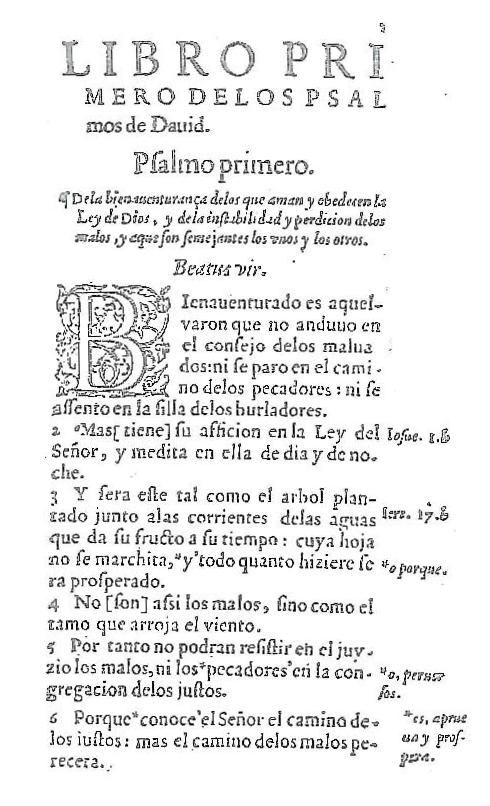 LIBRO PRI
MERO DELOS PSAL
mos de Dauid.
Pſalmo primero.
¶ Dela bienauenturança delos que aman y obedecen la
Ley de Dios, y dela inſtabilidad y perdicion delos
malos, y a que ſon ſemejantes los vnos y los otros.
Beatus vir.
BIenauenturado es aquel-
varon que no anduuo en
el conſejo delos malua
dos: ni ſe paro en el cami-
no delos pecadores: ni ſe
aſſento en la ſilla delos burladores.
2 Mas [tiene] ſu afficion en la Ley del
Ioſue. 1.b
Señor, y medita en ella de dia y de no-
che.
3 Y ſera eſte tal como el arbol plan-
tado junto alas corrientes delas aguas
Iere. 17.b
que da ſu fructo a ſu tiempo: cuya hoja
no ſe marchita, *y'todo quanto hiziere ſe
*o porque.
ra proſperado.
4 No [ſon] aſsi los malos, ſino como el
tamo que arroja el viento.
5 Por tanto no podran reſiſtir en el juy-
zio los malos, ni los *pecadores' en la con-
*o, peruer
gregacion delos juſtos.
ſos.
6 Porque *conoce' el Señor el camino de-
*es, aprue
los iuſtos: mas el camino delos malos pe-
ua y proſ-
recera.
pera.